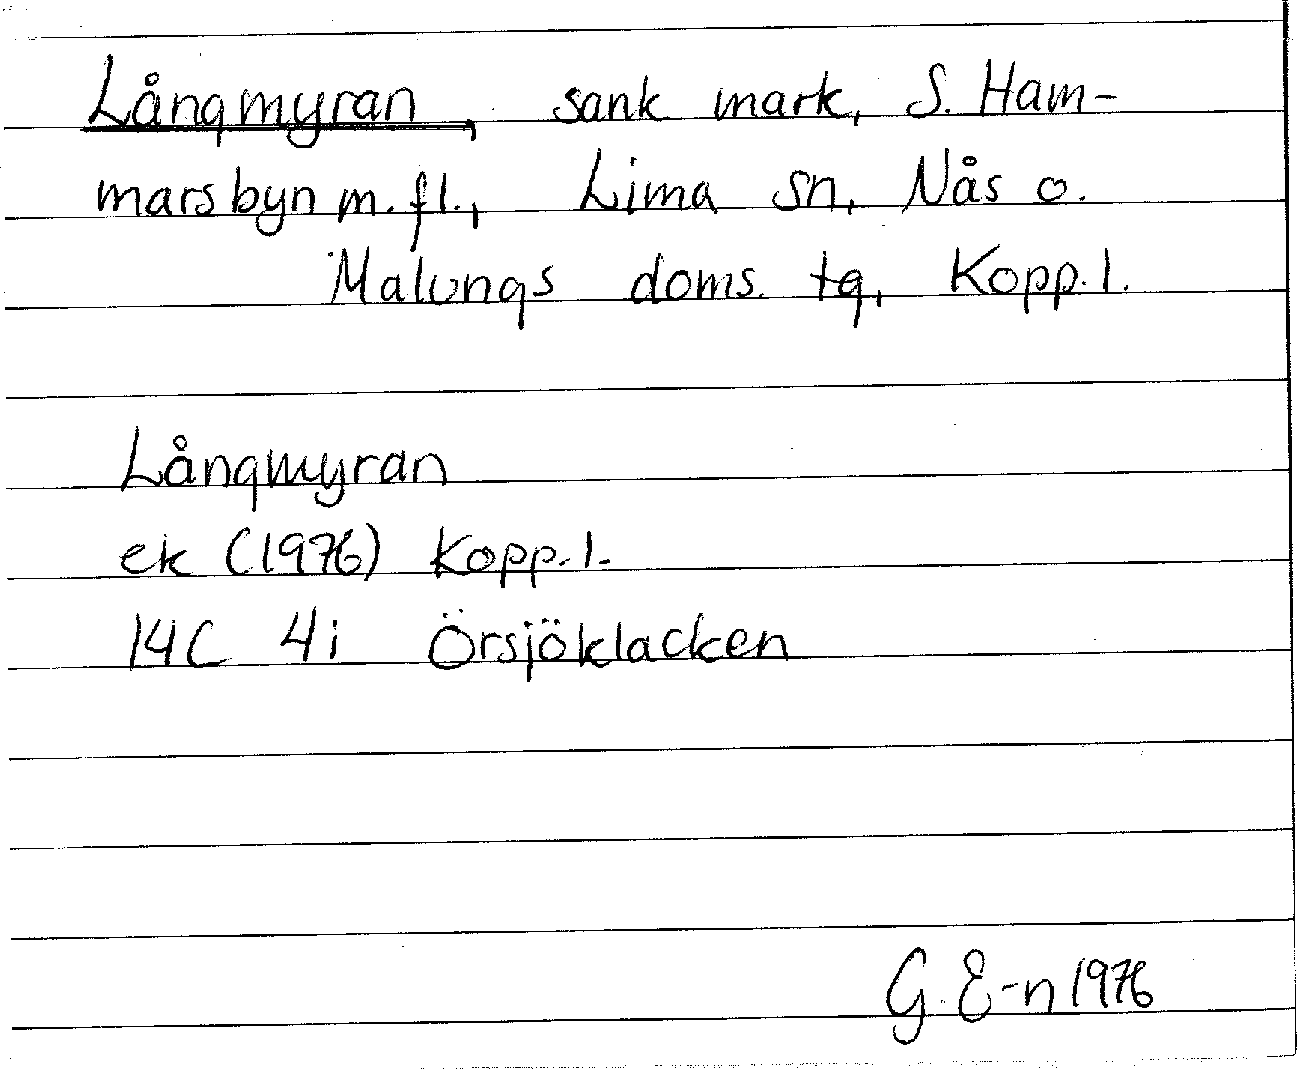 Långmyran, sank mark, S. Ham-
marsbyn m.fl., Lima sn, Nås o.
Malungs doms. tg, Kopp.l.
Långmyran
ek (1976) Kopp.l.
14C 4i Örsjöklacken
G. E-n 1976